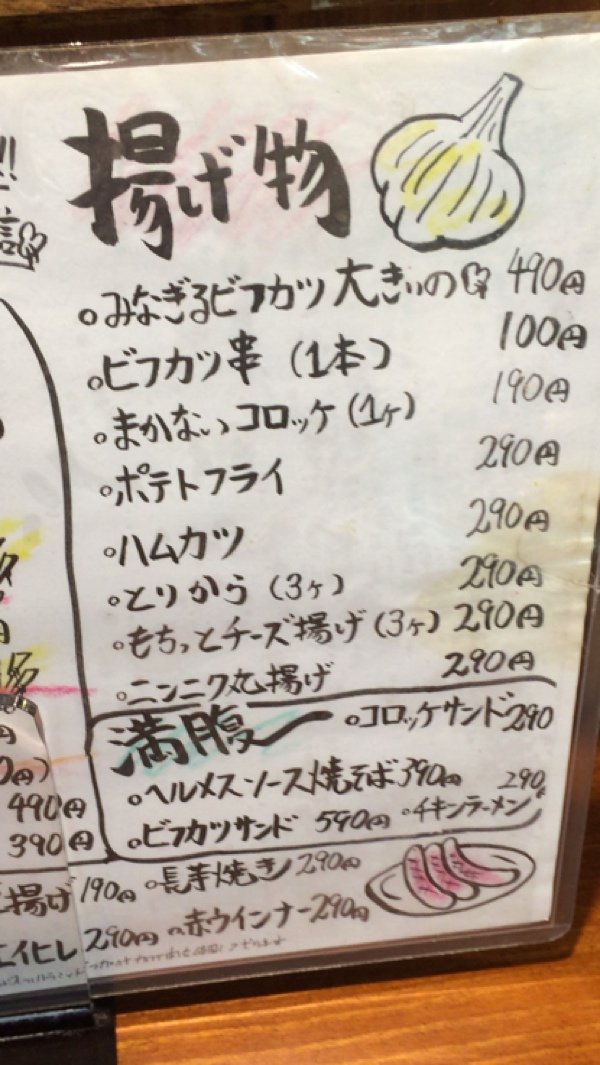 揚げ物
。みなぎるビフカツ 大きいの 490円
。ビフカツ串 (1本) 100円
。まかないコロッケ (1ヶ) 190円
。ポテトフライ 290円
。ハムカツ 290円
。とりから (3ヶ) 290円
。もちっとチーズ揚げ (3ヶ) 290円
。ニンニク丸揚げ 290円
満腹 。コロッケサンド 290
。ヘルメスソース焼そば 390円
。ビフカツサンド 590円 。チキンラーメン 290
490円
390円
揚げ 190円 。長芋焼き 290円
エイヒレ 290円 。赤ウインナー 290円